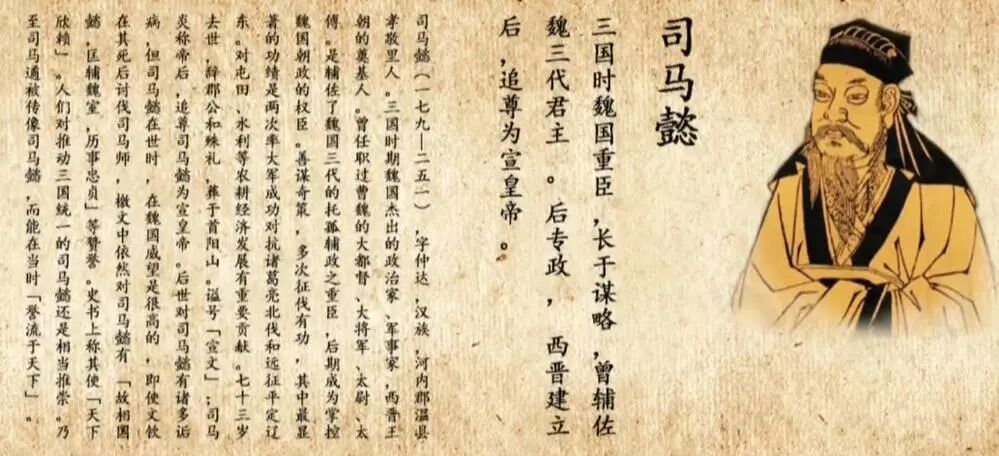 司马懿
三国时魏国重臣，长于谋略，曾辅佐
魏三代君主。后专政，西晋建立
后，追尊为宣皇帝。
司马懿（一七九—二五一），字仲达，汉族，河内郡温县
孝敬里人。三国时期魏国杰出的政治家，军事家，西晋王
朝的奠基人。曾任职过曹魏的大都督、大将军、太尉、太
傅。是辅佐了魏国三代的托孤辅政之重臣，后期成为掌控
魏国朝政的权臣。善谋奇策，多次征伐有功，其中最显
著的功绩是两次率大军成功对抗诸葛亮北伐和远征平定辽
东。对屯田、水利等农耕经济发展有重要贡献。七十三岁
去世，辞郡公和殊礼，葬于首阳山。谥号「宣文」；司马
炎称帝后，追尊司马懿为宣皇帝。后世对司马懿有诸多诟
病，但司马懿在世时，在魏国威望是很高的，即使文钦
在其死后讨伐司马师，檄文中依然对司马懿有「故相国
懿，匡辅魏室，历事忠贞」等赞誉。史书上称其使「天下
欣赖」。人们对推动三国统一的司马懿还是相当推崇。乃
至司马遹被传像司马懿，而能在当时「誉流于天下」。